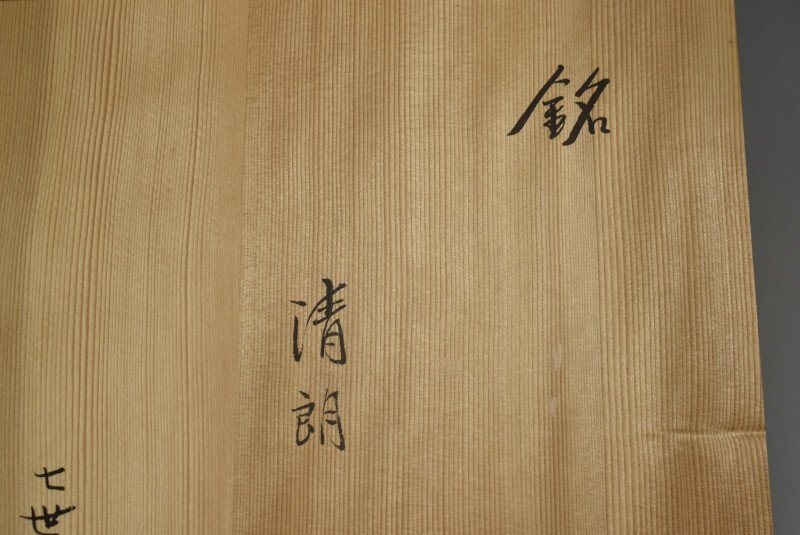 銘
清朗
七世